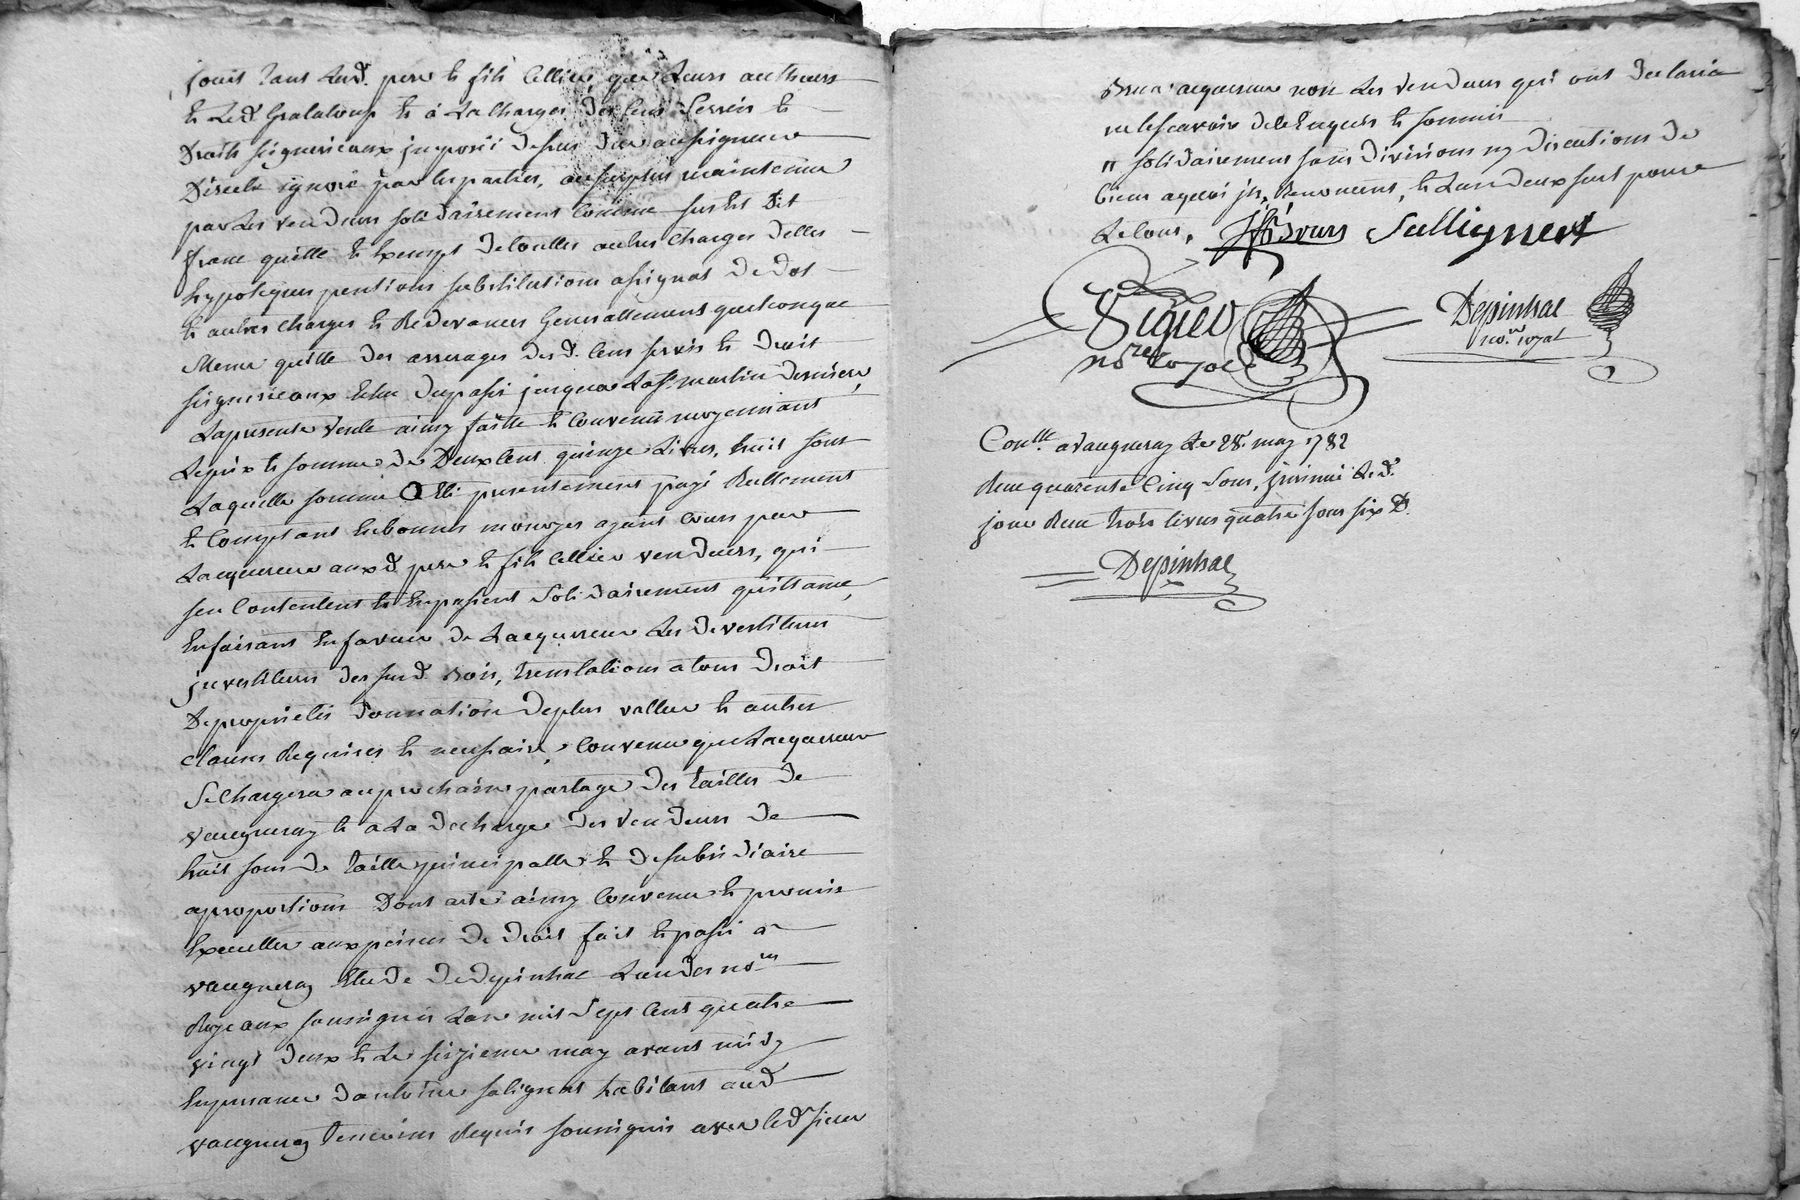 jouit tant lesd. pere et fils Cellier, que leurs autheurs
et led. Gralaloup et à la charge des cens servis et
droits seigneuriaux imposés dessus dus au seigneur
direct ignoré par les parties, au surplus maintenue
par les vendeurs solidairement comme sus est dit
franc quitte et exempt de touttes autres charges dettes
hypoteques pentions substitutions assignat de dot
et autres charges et redevances generallement quelconque
meme quitte des arrerages desd. cens servis et droit
seigneuriaux echu du passé jusqua la st martin derniere,
la presente vente ainsy faitte et convenue moyennant
le prix et somme de deux cent quinze livres, huit sous
laquelle somme a été presentement payé reellement
et comptant en bonnes monoyes ayant cours par
lacquereur auxd. pere et fils Cellier vendeurs, qui
sen contentent et en passent solidairement quittance,
en faisant en faveur de lacquereur les devestitures
investitures des susd. bois, translations a tous droit
de proprietés donnation de plus vallue et autres
clauses requises et necessaire, convenu que lacquereur
se chargera au prochain partage des tailles de
vaugneray et a la decharge des vendeurs de
huit sous de taille principalle et de subsidiaire
a proportion dont acte ainsy convenu et promis
executter aux peines de droit fait et passé a
vaugneray etude de depinhac lun des nores
royaux soussignés lan mil sept cent quatre
vingt deux et le sizieme may avant midy
en presence dantoine salignat habitant aud.
vaugneray temoins requis soussignés avec led. sieur
acquereur non les vendeurs qui ont declaré
ne le scavoir de ce enquis et sommés
" solidairement sans divisions ny discutions de
biens a quoi ils renoncent, et l'un deux seul pour
le tout,
Sallignat
Viguer Depinhac
nore royal no. royal
Conllé. a vaugneray le 28. may 1782
Reçu quarente cinq sous, insinué led.
jour Reçu trois livres quatre sous six d.
Depinhac